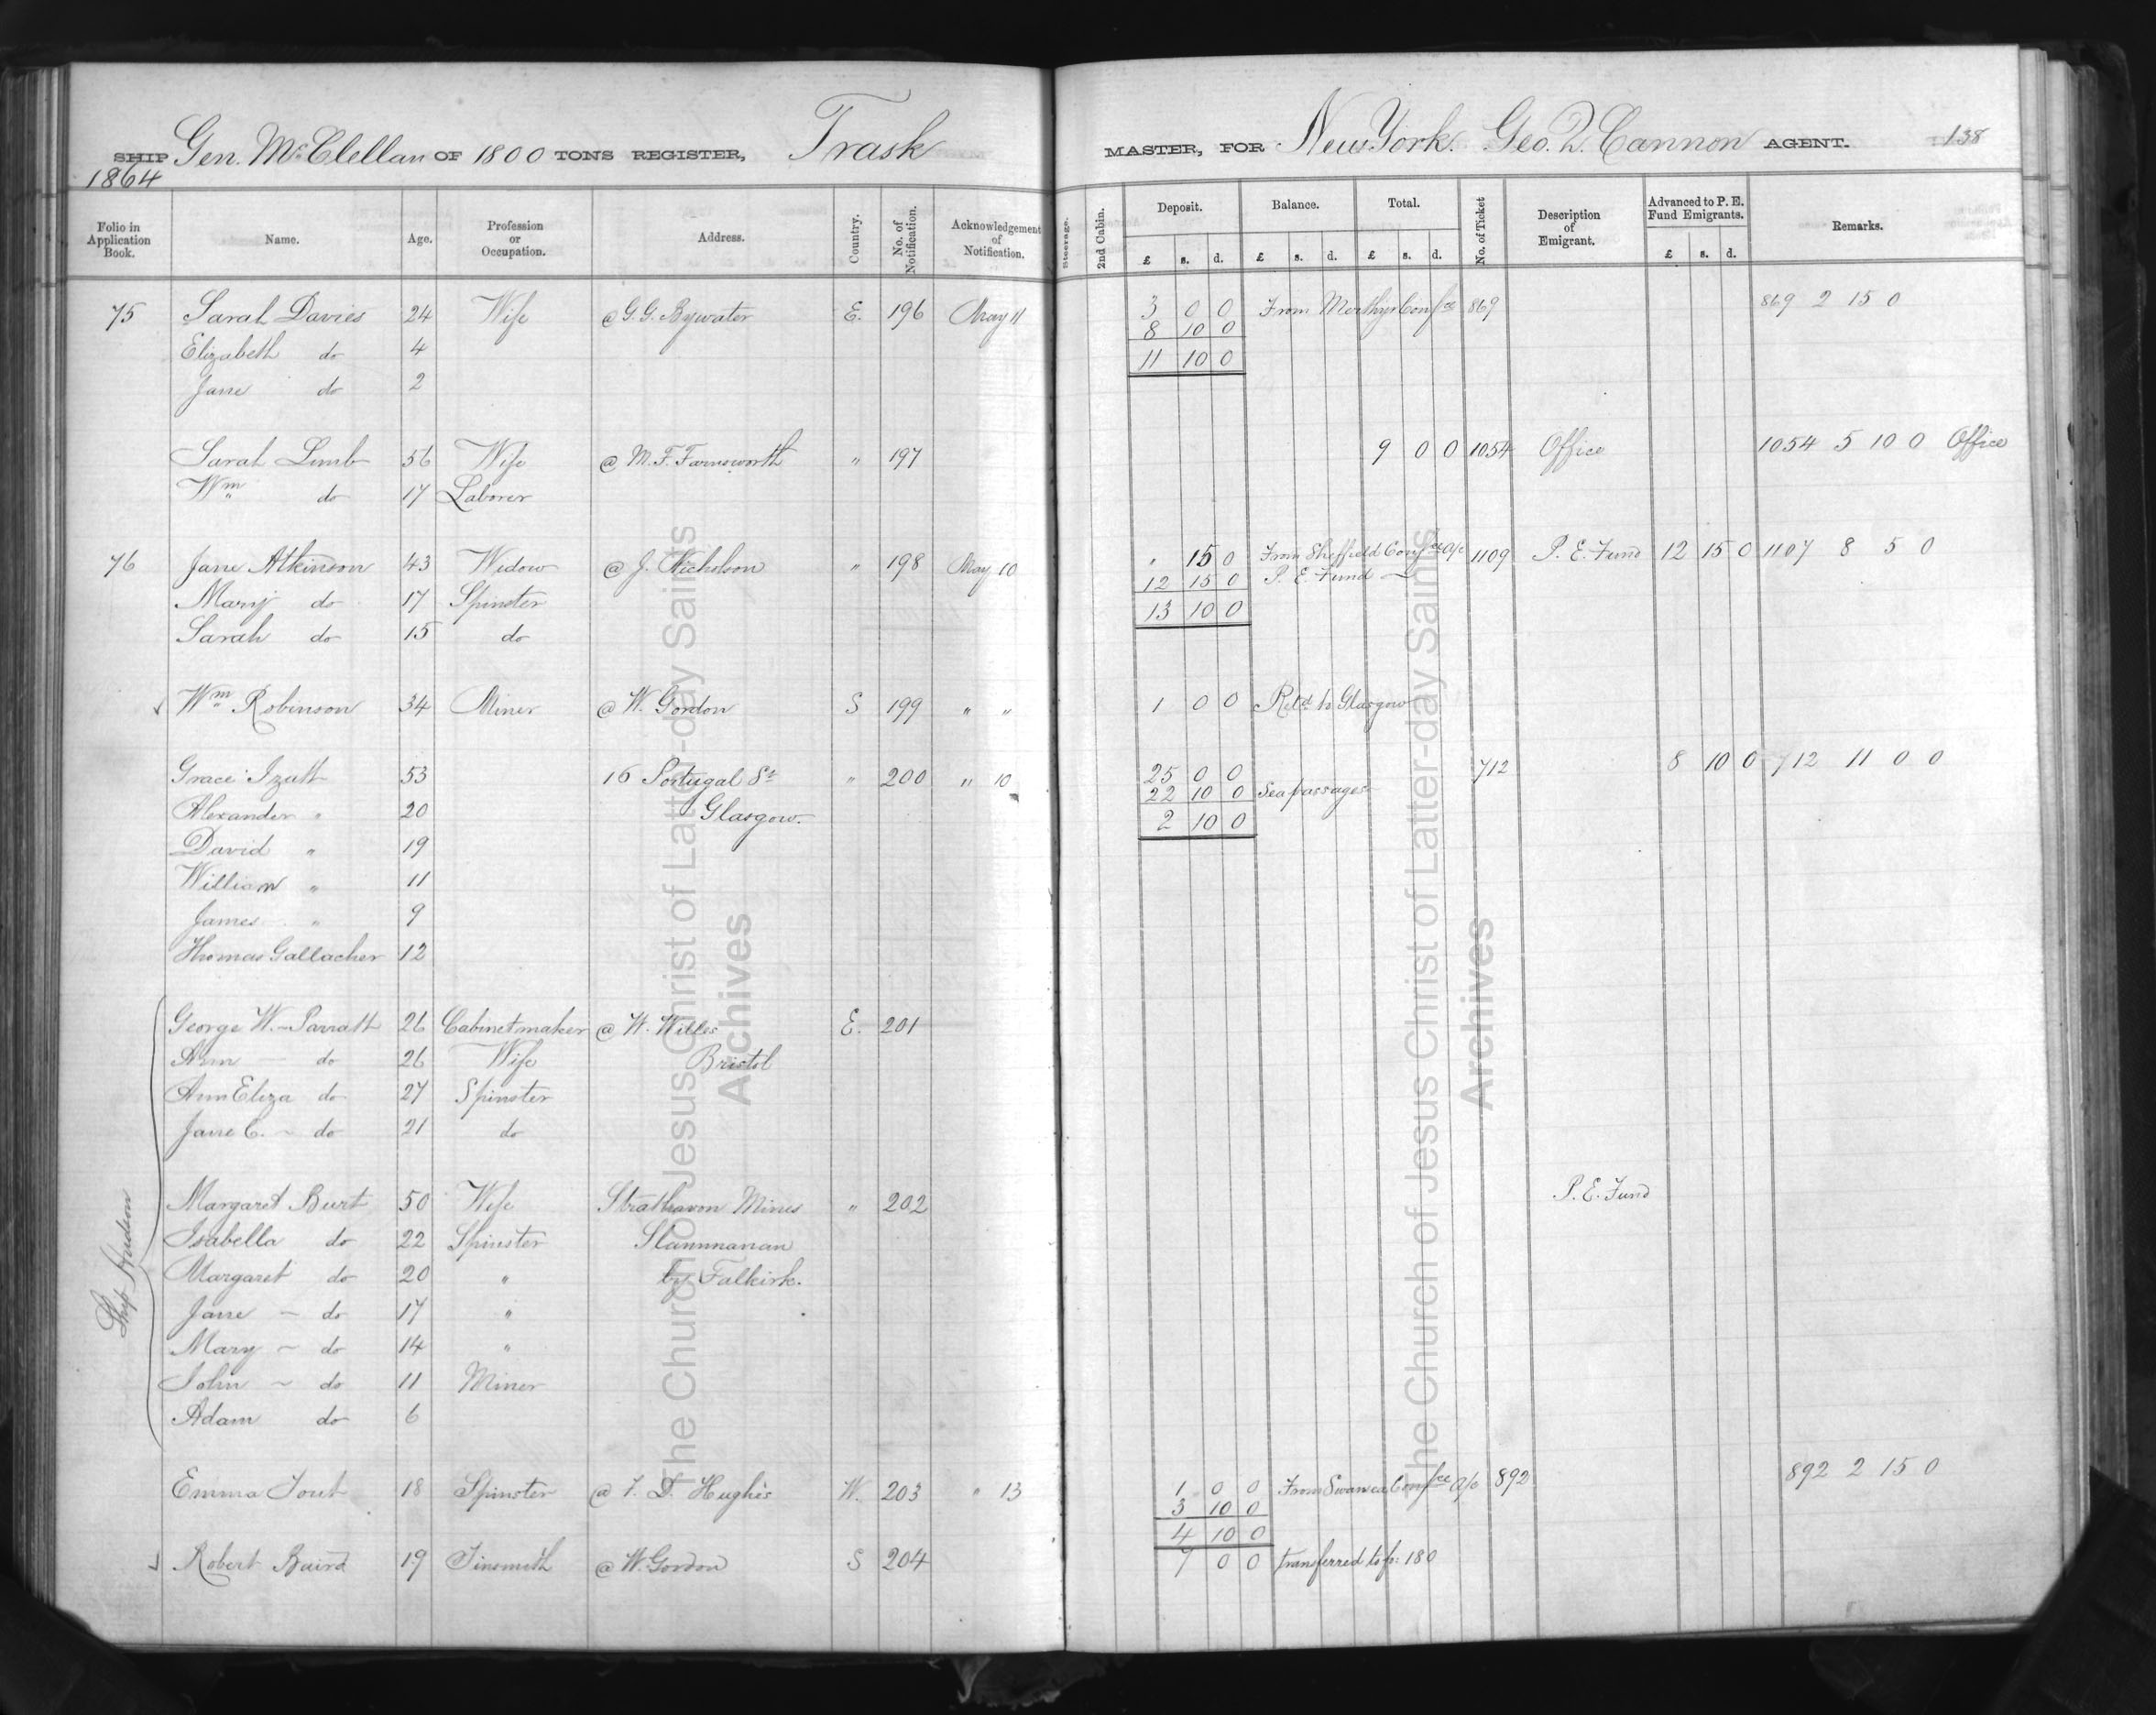 SHIP Gen. McClellan OF 1800 TONS REGISTER, Trask MASTER, FOR New York. Geo. Q. Cannon AGENT. 138
1864
Folio in Application Book. Name. Age. Profession or Occupation. Address. Country. No. of Notification. Acknowledgement of Notification. Steerage. 2nd Cabin. Deposit. Balance. Total. No. of Ticket Description of Emigrant. Advanced to P. E. Fund Emigrants. Remarks.
£ s. d. £ s. d. £ s. d. £ s. d.
75 Sarah Davies 24 Wife @ G. G. Bywater E. 196 May 11 3 0 0 From Merthyr Confce 869 869 2 15 0
8 10 0
Elizabeth do 4 11 10 0
Jane do 2
Sarah Limb 56 Wife @ M. F. Farnsworth " 197 9 0 0 1054 Office 1054 5 10 0 Office
Wm " do 17 Laborer
76 Jane Atkinson 43 Widow @ J. Nicholson " 198 May 10 " 15 0 From Sheffield Confce a/c 1109 P. E. Fund 12 15 0 1107 8 5 0
12 15 0 P. E. Fund —
Mary do 17 Spinster 13 10 0
Sarah do 15 do
Wm Robinson 34 Miner @ W. Gordon S 199 " " 1 0 0 Retd to Glasgow
Grace Izatt 53 16 Portugal St " 200 " 10 25 0 0 712 8 10 0 712 11 0 0
22 10 0 Sea passages
Alexander " 20 Glasgow. 2 10 0
David " 19
William " 11
James " 9
Thomas Gallacher 12
George W. Parratt 26 Cabinetmaker @ W. Willes E. 201
Ann — do 26 Wife Bristol
Ann Eliza do 27 Spinster
Jane C. ~ do 21 do
Ship Hudson
Margaret Burt 50 Wife Strathavon Mines " 202 P. E. Fund
Isabella do 22 Spinster Slammanan
Margaret do 20 " by Falkirk.
Jane — do 17 "
Mary ~ do 14 "
John ~ do 11 Miner
Adam do 6
Emma Tout 18 Spinster @ T. D. Hughes W. 203 " 13 1 0 0 From Swansea Confce a/c 892 892 2 15 0
3 10 0
4 10 0
Robert Baird 19 Tinsmith @ W. Gordon S 204 7 0 0 transferred to p: 180
The Church of Jesus Christ of Latter-day Saints
Archives
The Church of Jesus Christ of Latter-day Saints
Archives